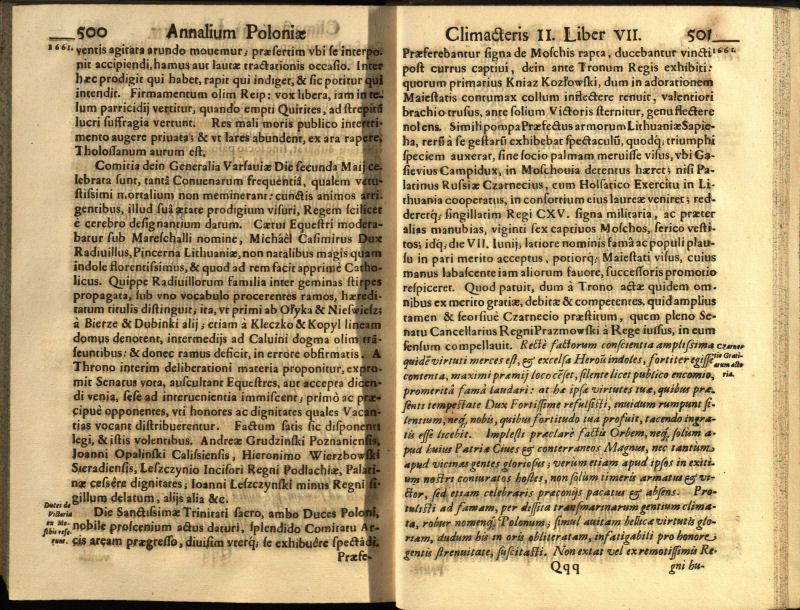 500 Annalium Poloniæ
1661. ventis agitata arundo mouemur; præsertim vbi se interpo-
nit accipiendi, hamus aut lautæ tractationis occasio. Inter
hæc prodigit qui habet, rapit qui indiget, & sic potitur qui
intendit. Firmamentum olim Reip: vox libera, iam in te-
lum parricidij vertitur, quando empti Quirites, ad strepitũ
lucri suffragia vertunt. Res mali moris publico intertri-
mento augere priuata; & vt lares abundent, ex ara rapere,
Tholossanum aurum est.
Comitia dein Generalia Varsauiæ Die secunda Maij ce-
lebrata sunt, tantâ Conuenarum frequentiâ, qualem vetu-
stissimi mortalium non meminerant: cunctis animos arri-
gentibus, illud suâ ætate prodigium visuri, Regem scilicet
è cerebro designantium datum. Cætui Equestri modera-
batur sub Mareschalli nomine, Michâel Casimirus Dux
Radiuillus, Pincerna Lithuaniæ, non natalibus magis quam
indole florentissimus, & quod ad rem facit apprimè Catho-
licus. Quippe Radiuillorum familia inter geminas stirpes
propagata, sub vno vocabulo procerentes ramos, hæredi-
tatum titulis distinguit; ita, vt primi ab Ołyka & Nieświesz;
à Bierze & Dubinki alij; etiam à Kleczko & Kopyl lineam
domus denotent, intermedijs ad Caluini dogma olim trã-
seuntibus: & donec ramus deficit, in errore obfirmatis. A
Throno interim deliberationi materia proponitur, expro-
mit Senatus vota, auscultant Equestres, aut accepta dicen-
di venia, sese ad interuenientia immiscent; primò ac præ-
cipuè opponentes, vti honores ac dignitates quales Vacan-
tias vocant distribuerentur. Factum satis sic disponenti
legi, & istis volentibus. Andreæ Grudzinski Poznaniensis,
Joanni Opalinski Calisiensis, Hieronimo Wierzbowski
Sieradiensis, Leszczynio Incisori Regni Podlachiæ, Palati-
næ cessêre dignitates; Ioanni Leszczynski minus Regni si-
gillum delatum, alijs alia &c.
Duces de
Victoria
ex Mo-
schis refe-
runt.
Die Sanctissimæ Trinitati sacro, ambo Duces Poloni,
nobile proscenium actus daturi, splendido Comitatu Ar-
cis arcam prægresso, diuisim vterq; se exhibuêre spectãdi.
Præfe-
Climacteris II. Liber VII. 501
1661.
Præferebantur signa de Moschis rapta, ducebantur vincti
post currus captiui, dein ante Tronum Regis exhibiti:
quorum primarius Kniaz Kozłowski, dum in adorationem
Maiestatis contumax collum inflectere renuit, valentiori
brachio trusus, ante solium Victoris sternitur, genu flectere
nolens. Simili pompa Præfectus armorum Lithuaniæ Sapie-
ha, rerũ â se gestarũ exhibebat spectaculũ, quodq; triumphi
speciem auxerat, sine socio palmam meruisse visus, vbi Ga-
sievius Campidux, in Moschouia detentus hæret; nisi Pa-
latinus Russiæ Czarnecius, cum Holsatico Exercitu in Li-
thuania cooperatus, in consortium eius laureæ veniret; red-
deretq; singillatim Regi CXV. signa militaria, ac præter
alias manubias, viginti sex captiuos Moschos, serico vesti-
tos; idq; die VII. Iunij, latiore nominis famâ ac populi plau-
su in pari merito acceptus, potiorq; Maiestati visus, cuius
manus labascente iam aliorum fauore, successoris promotio
respiceret. Quod patuit, dum à Trono actæ quidem om-
nibus ex merito gratiæ, debitæ & competentes, quid amplius
tamen & seorsiuè Czarnecio præstitum, quem pleno Se-
natu Cancellarius Regni Prazmowski à Rege iussus, in eum
sensum compellauit. Rectè factorum conscientia amplissima
Czarne-
tio Grati-
arum actio
ria.
quidẽ virtuti merces est, & excelsa Heroũ indoles, fortiter egisse
contenta, maximi præmij loco cẽset, silente licet publico encomio,
promeritâ famâ laudari: at hæ ipsæ virtutes tuæ, quibus præ-
senti tempestate Dux Fortissime refulsisti, inuidum rumpunt si-
lentium, neq; nobis, quibus fortitudo tua profuit, tacendo ingra-
tis esse licebit. Implesti præclarè factis Orbem, neq; solum a-
pud huius Patriæ Ciues & conterraneos Magnus, nec tantum
apud vicinas gentes gloriosus; verùm etiam apud ipsos in exiti-
um nostri coniuratos hostes, non solùm timeris armatus & vi-
ctor, sed etiam celebraris præconijs pacatus & absens. Pro-
tulisti ad famam, per dissita transmarinarum gentium clima-
ta, robur nomenq; Polonum; simul auitam bellicæ virtutis glo-
riam, dudum his in oris obliteratam, infatigabili pro honore
gentis strenuitate, suscitasti. Non extat vel ex remotissimis Re-
Qqq gni hu-